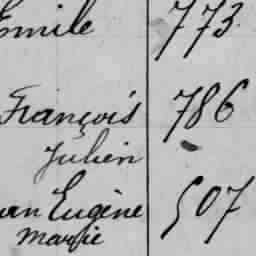 Emile 773
François 786
Julien
Eugène 507
Marie